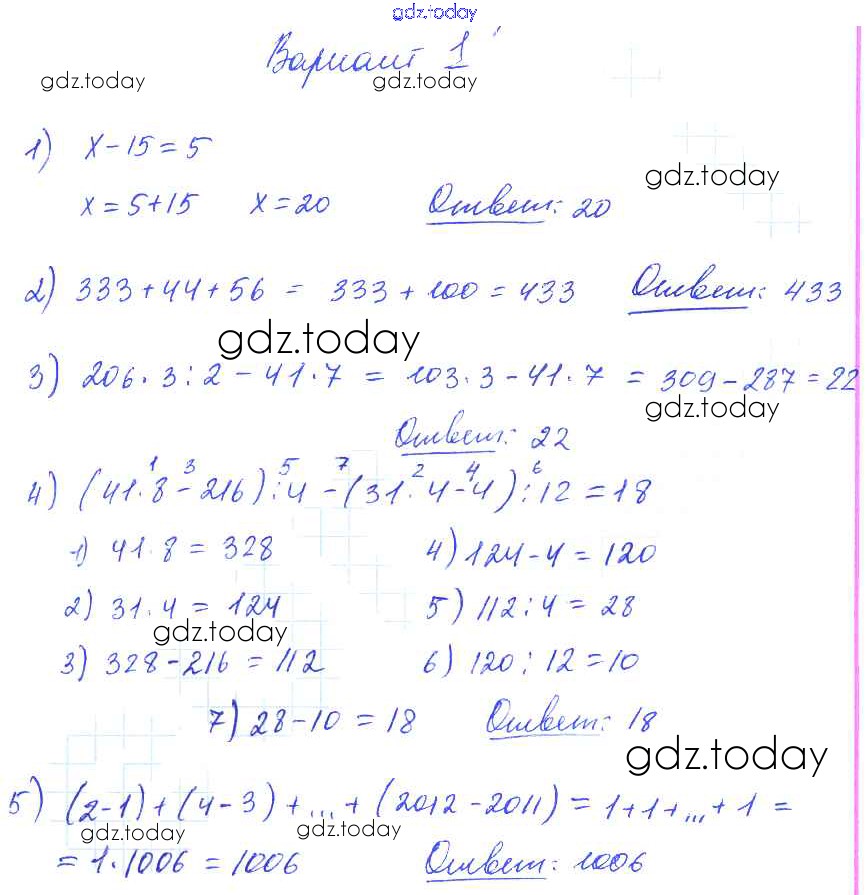 gdz.today
Вариант 1
gdz.today gdz.today
1) x - 15 = 5
gdz.today
x = 5 + 15 x = 20 Ответ: 20
2) 333 + 44 + 56 = 333 + 100 = 433 Ответ: 433
gdz.today
3) 206 · 3 : 2 - 41 · 7 = 103 · 3 - 41 · 7 = 309 - 287 = 22
gdz.today
Ответ: 22
1 3 5 7 2 4 6
4) (41 · 8 - 216) : 4 - (31 · 4 - 4) : 12 = 18
1) 41 · 8 = 328 4) 124 - 4 = 120
2) 31 · 4 = 124 5) 112 : 4 = 28
gdz.today
3) 328 - 216 = 112 6) 120 : 12 = 10
7) 28 - 10 = 18 Ответ: 18
gdz.today
5) (2 - 1) + (4 - 3) + ... + (2012 - 2011) = 1 + 1 + ... + 1 =
gdz.today gdz.today
= 1 · 1006 = 1006 Ответ: 1006